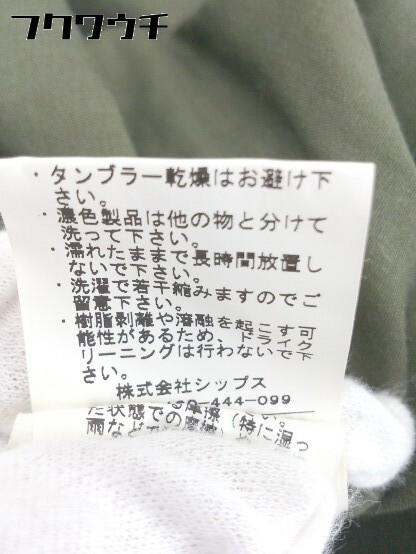 フクワウチ
・タンブラー乾燥はお避け下
さい。
・濃色製品は他の物と分けて
洗って下さい。
・濡れたままで長時間放置し
ないで下さい。
・洗濯で若干縮みますのでご
留意下さい。
・樹脂剥離や溶融を起こす可
能性があるため、ドライク
リーニングは行わないで下
さい。
株式会社シップス
-444-099
た状態での摩擦(特に湿っ